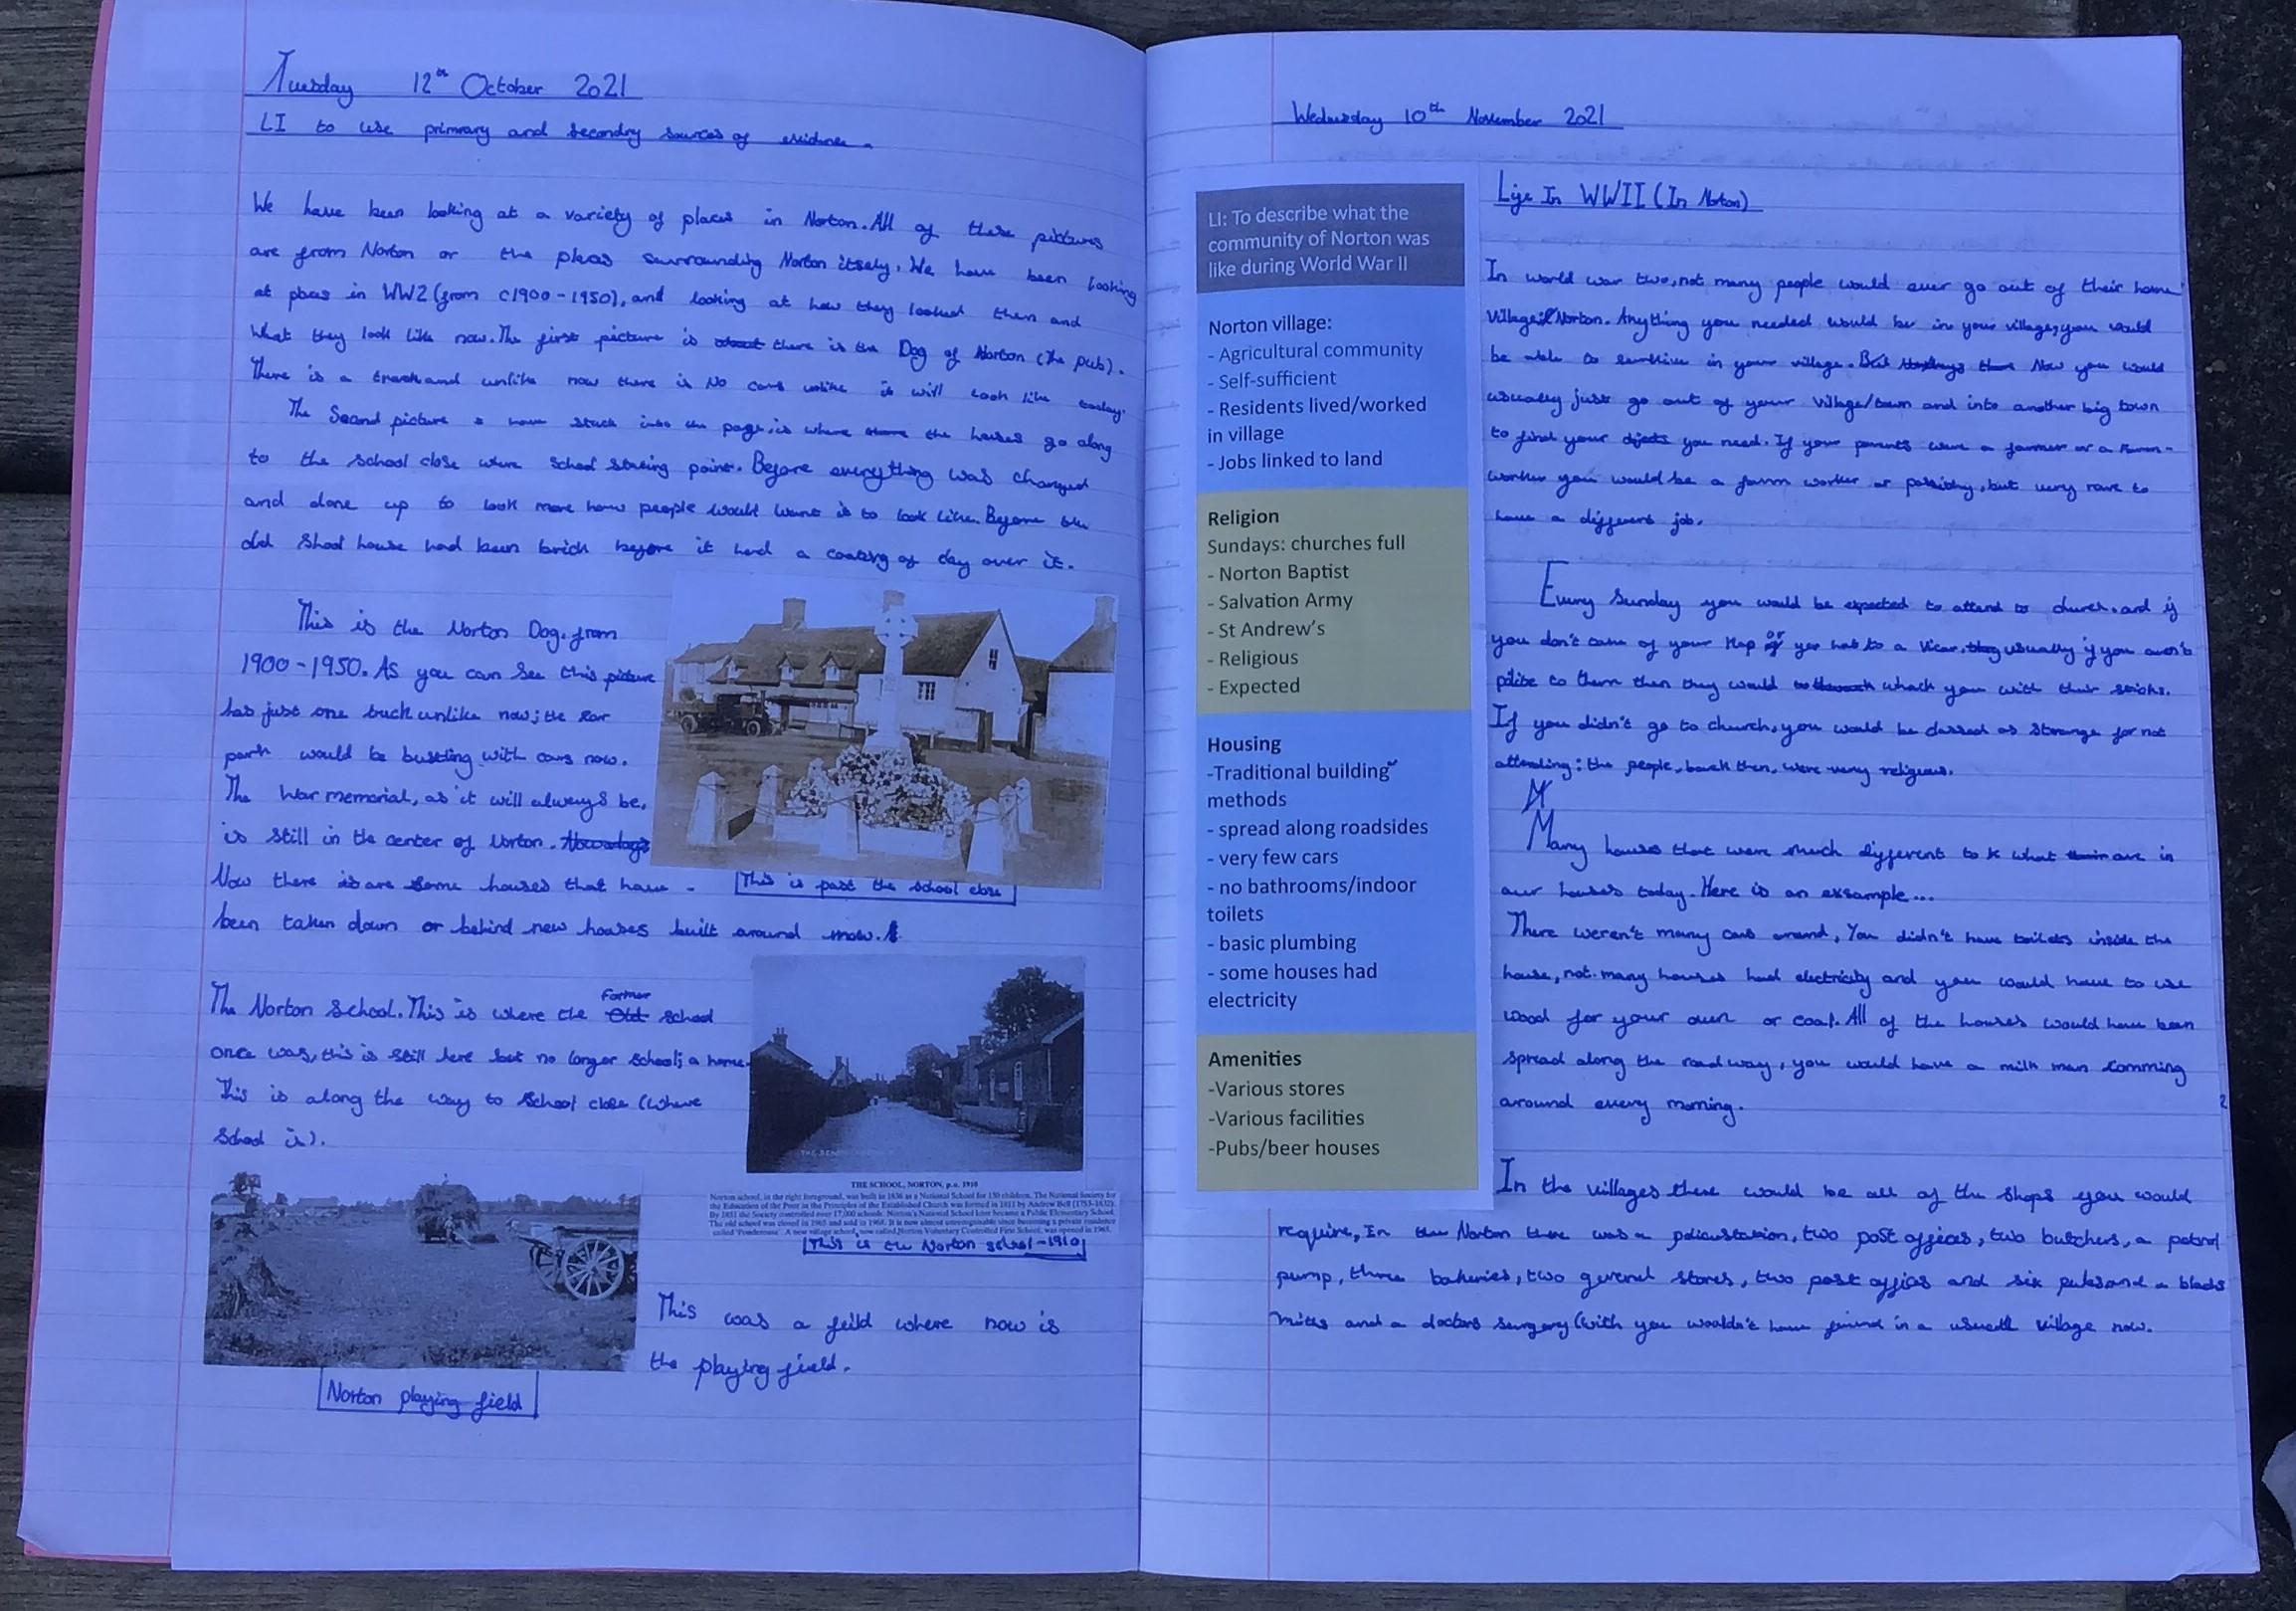 Tuesday 12th October 2021
LI to use primrary and secondry sources of evidence.
We have been looking at a variety of places in Norton. All of these pictures
are from Norton or the places surrounding Norton itself. We have been looking
at places in WW2 (from c1900-1950), and looking at how they looked then and
what they look like now. The first picture is there is the Dog of Norton (the pub).
There is a track and unlike now there is No cars unlike it will look like today.
The Second picture I have stuck into the page, is where the houses go along
to the school close were school staring point. Before everything was changed
and done up to look more how people would want it to look like. Before the
old Shool house had been brick before it had a coating of clay over it.
This is the Norton Dog. from
1900-1950. As you can see this picture
has just one truck unlike now; the car
park would be bustling with cars now.
The War memorial, as it will always be,
is still in the center of Norton. Nowadays
Now there is are some houses that have -
been taken down or behind new houses built around now.
This is past the school close
The Norton School. This is where the Old Former school
once was, this is still here but no longer school; a home.
This is along the way to School close (where
School is).
THE SCHOOL, NORTON, p.c. 1910
Norton school, in the right foreground, was built in 1836 as a National School for 130 children. The National Society for
the Education of the Poor in the Principles of the Established Church was formed in 1811 by Andrew Bell (1753-1832).
By 1851 the Society controlled over 17,000 schools. Norton's National School later became a Public Elementary School.
The old school was closed in 1965 and sold in 1968. It is now almost unrecognisable since becoming a private residence
called 'Ponderosa'. A new village school, now called Norton Voluntary Controlled First School, was opened in 1965.
This is the Norton school-1910
This was a feild where now is
the playing field.
Norton playing field
Wednesday 10th November 2021
LI: To describe what the
community of Norton was
like during World War II
Norton village:
- Agricultural community
- Self-sufficient
- Residents lived/worked
in village
- Jobs linked to land
Religion
Sundays: churches full
- Norton Baptist
- Salvation Army
- St Andrew's
- Religious
- Expected
Housing
-Traditional building
methods
- spread along roadsides
- very few cars
- no bathrooms/indoor
toilets
- basic plumbing
- some houses had
electricity
Amenities
-Various stores
-Various facilities
-Pubs/beer houses
Life In WWII (In Norton)
In world war two, not many people would ever go out of their home
Village Norton. Anything you needed would be in your village, you would
be able to in your village. But Now you would
usually just go out of your village/town and into another big town
to find your objects you need. If your parents were a farmer or a farm-
worker you would be a farm worker or possibly, but very rare to
have a different job.
Every Sunday you would be expected to attend to church. and if
you don't take of your or hat to a Vicar, usually if you aren't
pilite to them then they would whack you with their sticks.
If you didn't go to church, you would be classed as Strange for not
attending: the people, back then, were very religious.
Many houses that were much different to what are in
our houses today. Here is an exsample...
There weren't many cars around, You didn't have toilets inside the
house, not many houses had electricity and you would have to use
wood for your own or coal. All of the houses would have been
spread along the roadway, you would have a milk man comming
around every morning.
In the villages there would be all of the shops you would
require, In the Norton there was a policestation, two post offices, two butchers, a petrol
pump, three bakeries, two general stores, two post offices and six pubs and a black
smiths and a doctors surgery (with you wouldn't have found in a usuall village now.